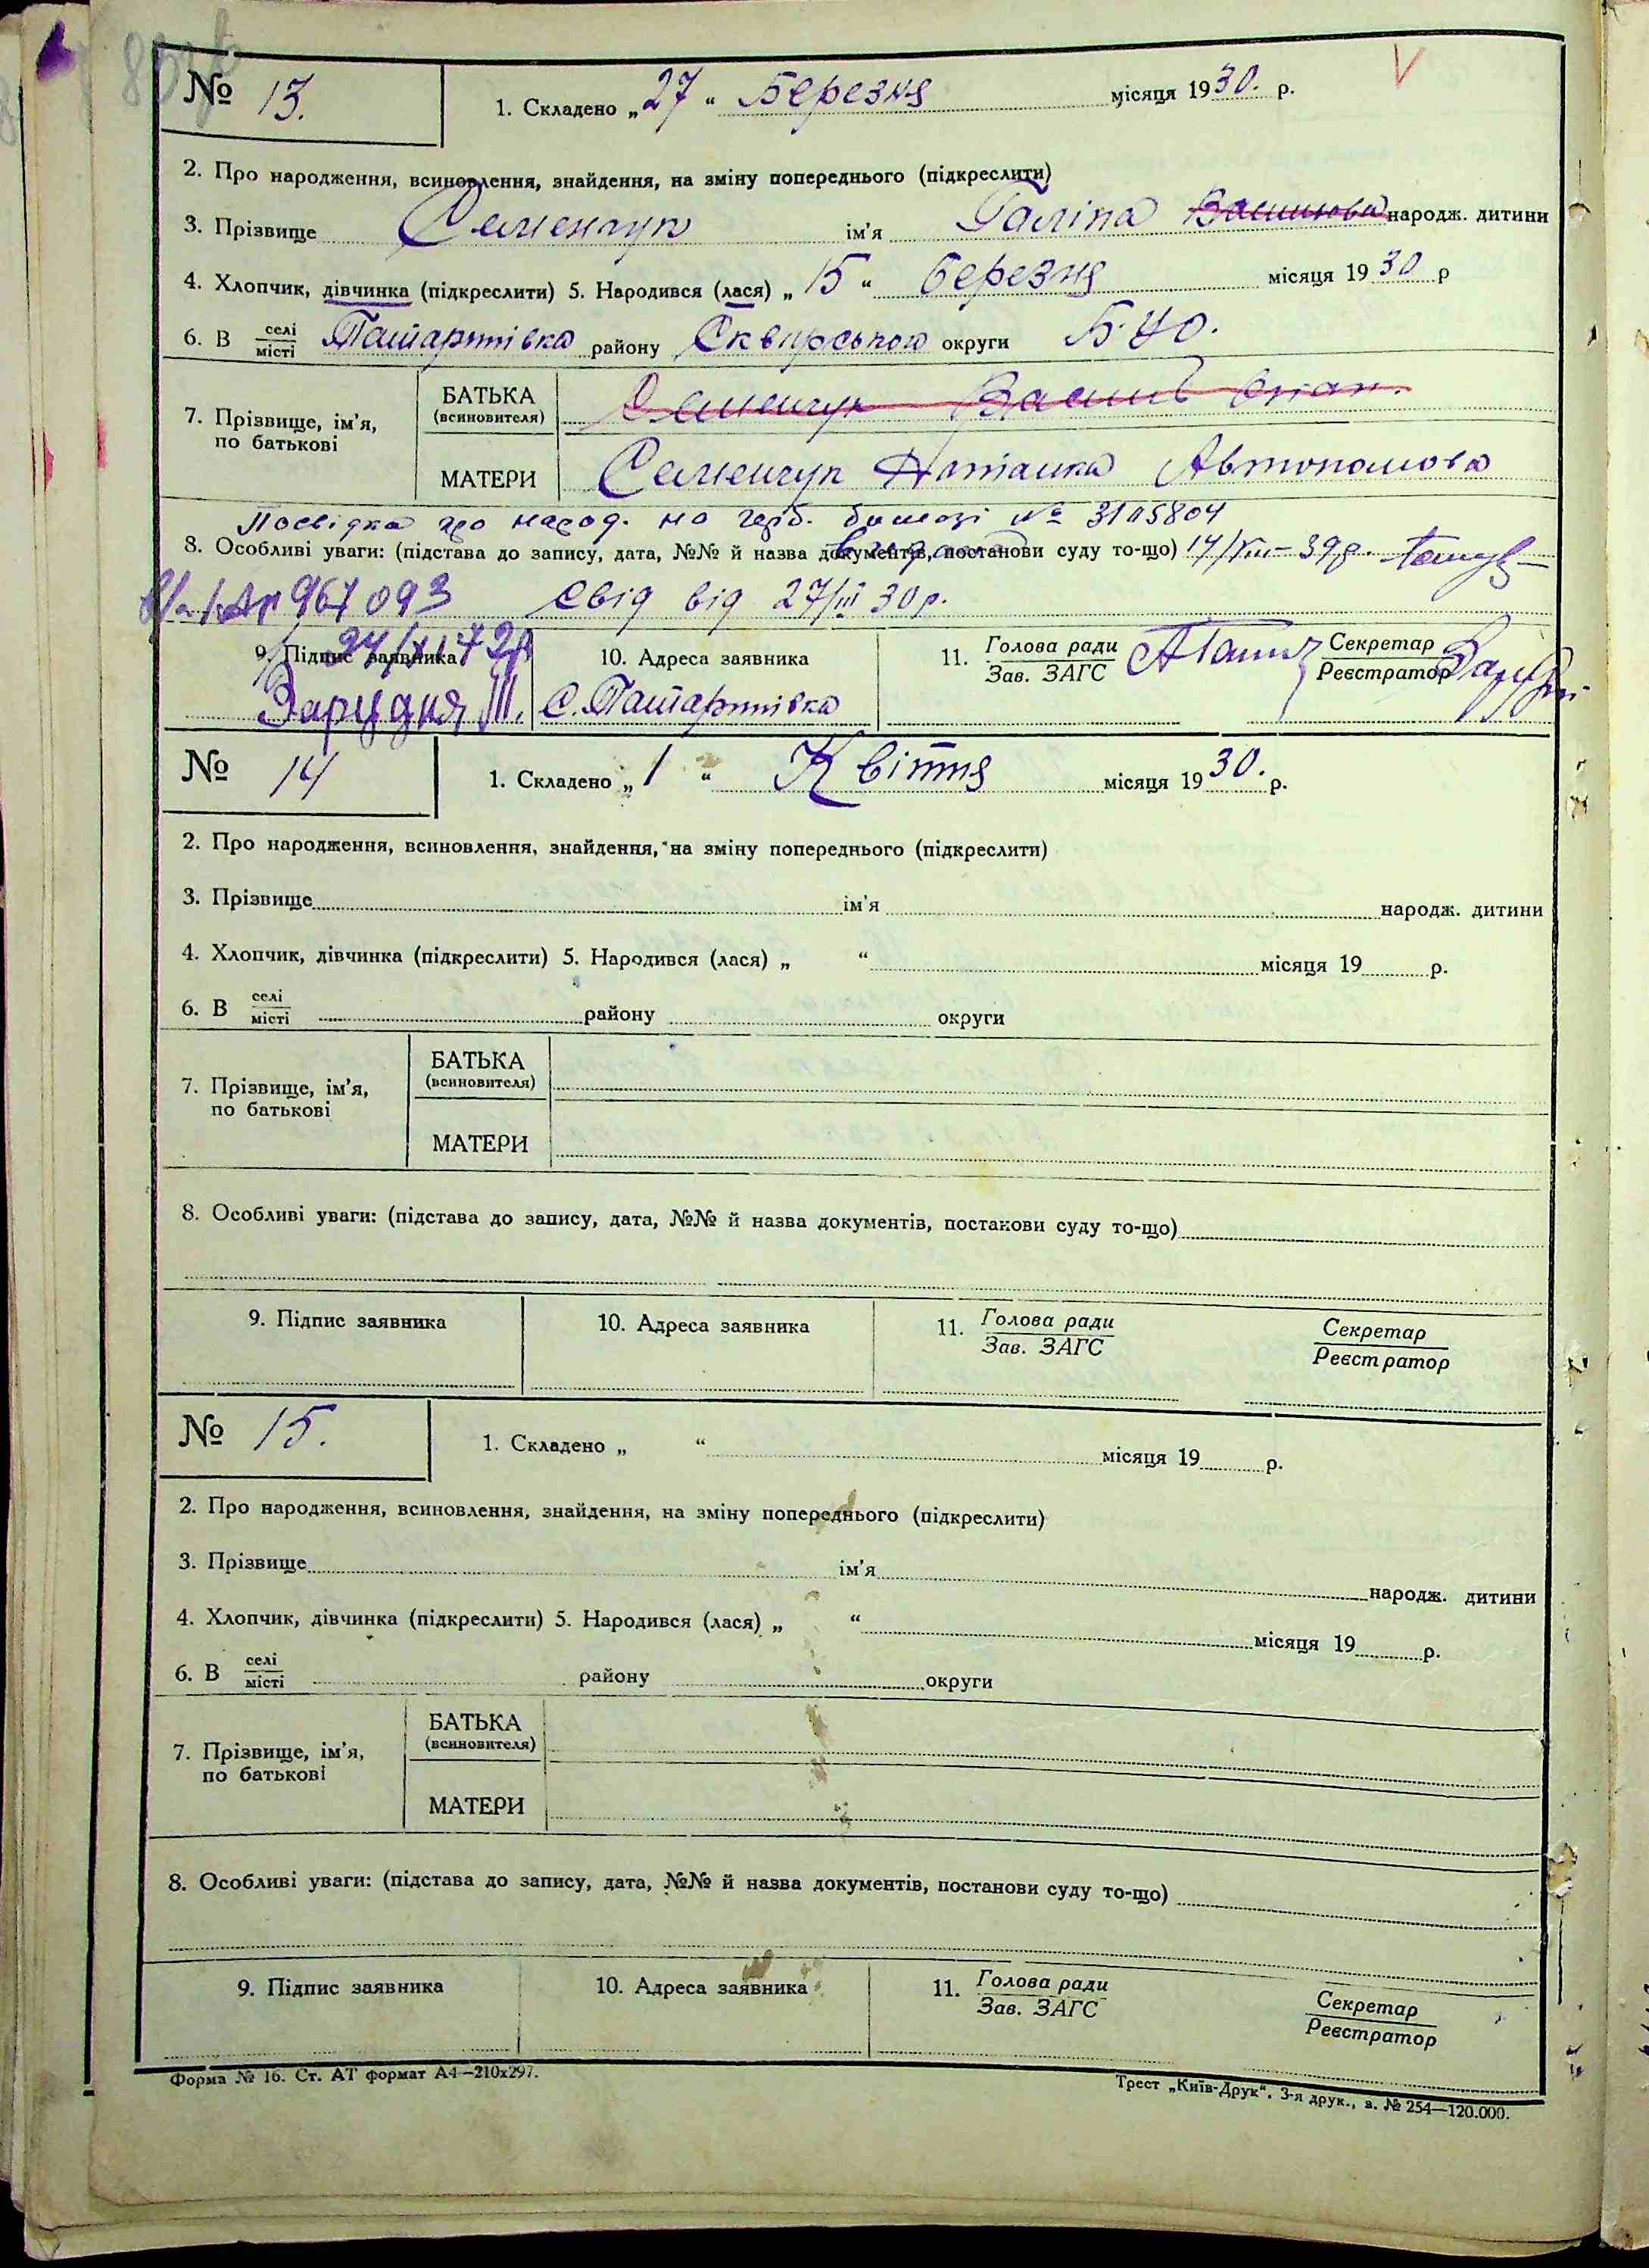 № 13. 1. Складено „27“ Березня місяця 1930. р.
2. Про народження, всиновлення, знайдення, на зміну попереднього (підкреслити)
3. Прізвище Семенчук ім'я Галіна народж. дитини
4. Хлопчик, дівчинка (підкреслити) 5. Народився (лася) „15“ березня місяця 1930 р
6. В селі/місті Татаринівка району Сквирського округи Б-Ц о.
7. Прізвище, ім'я, по батькові
БАТЬКА (всиновителя) Семенчук Василь
МАТЕРИ Семенчук Автономова
Посвідка про народ. на герб. бумазі № 3105804
8. Особливі уваги: (підстава до запису, дата, №№ й назва документів, постанови суду то-що) 14/XII-39р.
967093 Свід від 27/III 30р.
9. Підпис заявника 10. Адреса заявника 11. Голова ради Зав. ЗАГС Секретар Реєстратор
Зарудня с. Татаринівка
№ 14 1. Складено „1“ Квітня місяця 1930. р.
2. Про народження, всиновлення, знайдення, на зміну попереднього (підкреслити)
3. Прізвище ім'я народж. дитини
4. Хлопчик, дівчинка (підкреслити) 5. Народився (лася) „ “ місяця 19 р.
6. В селі/місті району округи
7. Прізвище, ім'я, по батькові
БАТЬКА (всиновителя)
МАТЕРИ
8. Особливі уваги: (підстава до запису, дата, №№ й назва документів, постанови суду то-що)
9. Підпис заявника 10. Адреса заявника 11. Голова ради Зав. ЗАГС Секретар Реєстратор
№ 15. 1. Складено „ “ місяця 19 р.
2. Про народження, всиновлення, знайдення, на зміну попереднього (підкреслити)
3. Прізвище ім'я народж. дитини
4. Хлопчик, дівчинка (підкреслити) 5. Народився (лася) „ “ місяця 19 р.
6. В селі/місті району округи
7. Прізвище, ім'я, по батькові
БАТЬКА (всиновителя)
МАТЕРИ
8. Особливі уваги: (підстава до запису, дата, №№ й назва документів, постанови суду то-що)
9. Підпис заявника 10. Адреса заявника 11. Голова ради Зав. ЗАГС Секретар Реєстратор
Форма № 16. Ст. АТ формат А4—210х297. Трест „Київ-Друк“. 3-я друк., з. № 254—120.000.